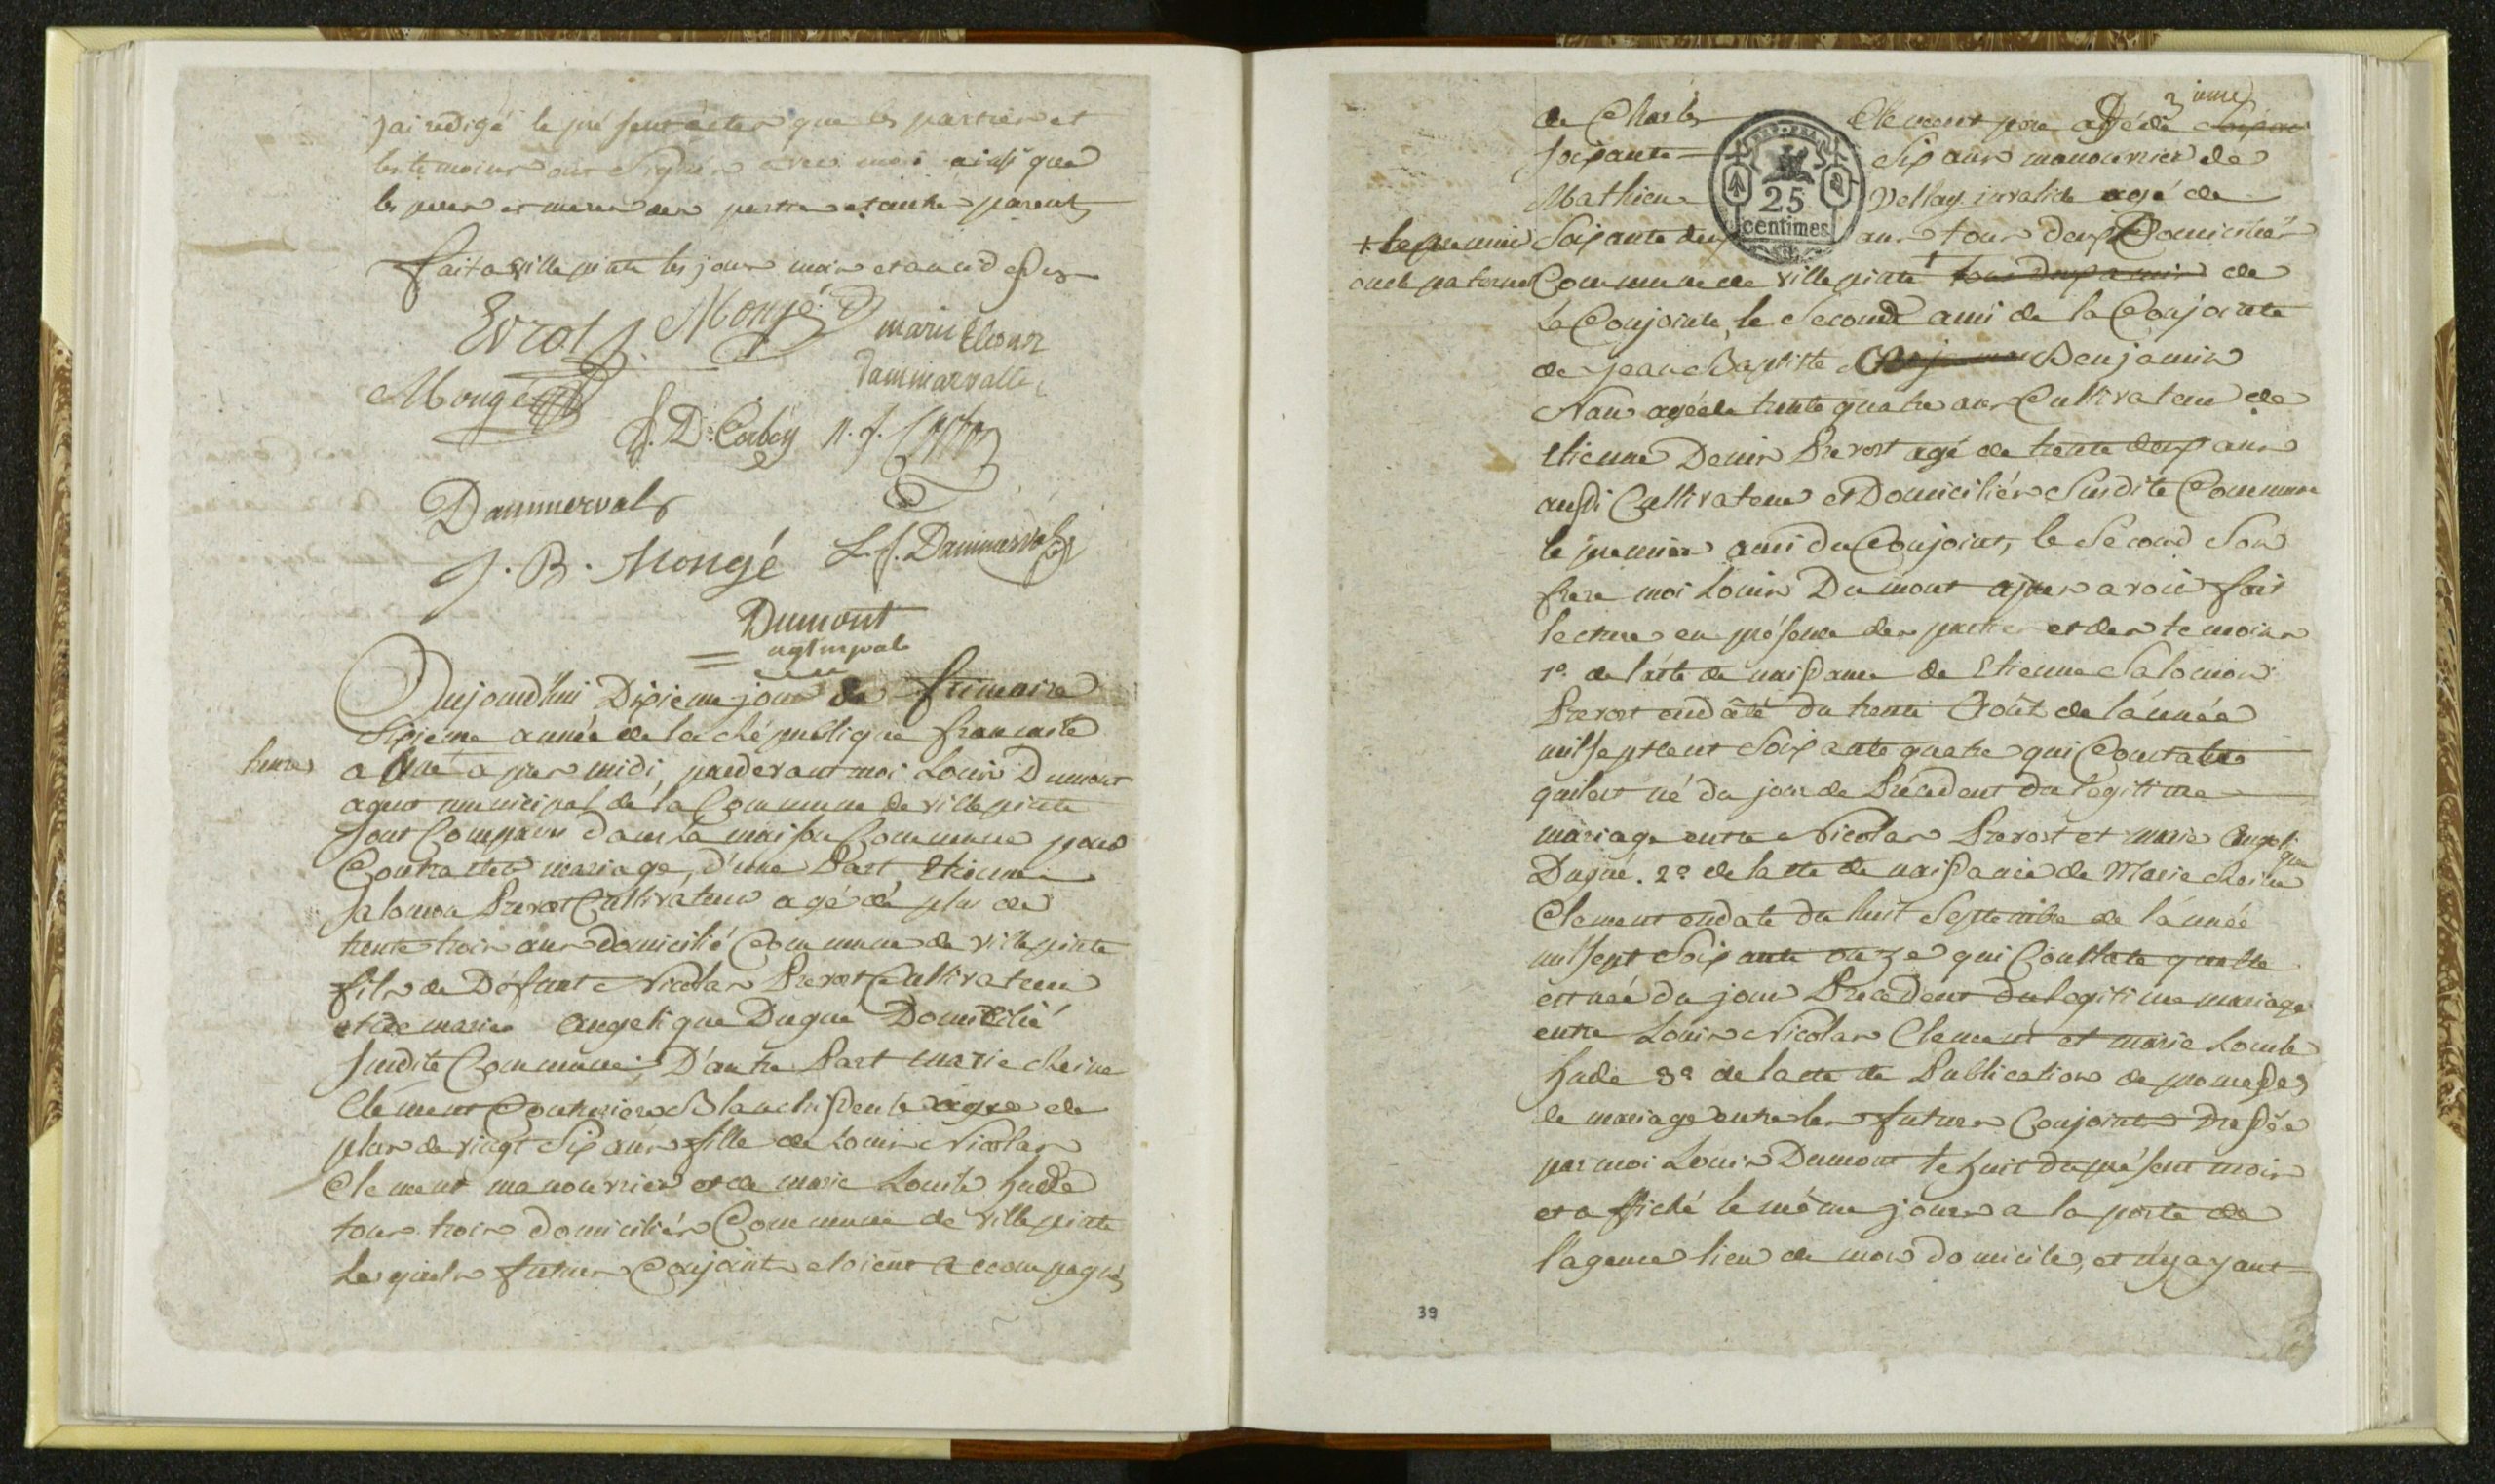 j'ai redigé le présent acte que les parties et
les temoins ont Signés avec moi ainsi que
les peres et meres des parties et autre parents
fait a villepinte les jour mois et an cidessus
Mongé
marie Eleonor
dammarvalle
Mongé
Dammerval
J. B. Mongé L. J. Dammerval
Dumont
agt mpal
Aujourd'hui Dixieme jour de frimaire
Sixieme année de la République francaise
heures
a une apres midi, pardevant moi Louis Dumont
agent municipal de la Commune de villepinte
Sont Comparus dans la maison Commune pour
Contracter mariage, d'une Part Etienne
Salomon Prevost Cultivateur agé de plus de
trente trois ans domicilié Commune de villepinte
fils de Défunt Nicolas Prevost Cultivateur
et de marie Angelique Dugué Domicilié
Susdite Commune D'autre Part marie Reine
Clément Blanchisseuse agée de
plus de vingt Six ans fille de Louis Nicolas
Clement manouvrier et de marie Louise hude
tous trois domiciliés Commune de villepinte
Lesquels futurs Conjoints etoient accompagnés
de Charles Clement agé de
Soixante Six ans manouvrier de
REP. FRA.
25
centimes
Mathieu Vellay invalide agé de
+ le premier
Soixante deux ans tous deux Domiciliés
oncle paternel
Commune de villepinte tous deux amis de
la Conjointe, le Second ami de la Conjointe
de jean Baptiste Benjamin
Nau agé de trente quatre ans Cultivateur de
Etienne Denis Prevost agé de trente deux ans
aussi Cultivateur et Domiciliés Susdite Commune
le premier ami du Conjoint, le Second Son
frere moi Louis Dumont apres avoir fait
lecture en présence des parties et des temoins
1º. de l'acte de naissance de Etienne Salomon
Prevost en dâté du trente Août de l'année
mil Sept Cent Soixante quatre qui Constate
qu'il est né du jour Précédent du légitime
mariage entre Nicolas Prevost et marie Angelique
Dugué. 2º. de lacte de naissance de Marie Reine
Clement en date du huit Septembre de l'année
mil Sept Soixante onze qui Constate quelle
est née du jour Précédent du légitime mariage
entre Louis Nicolas Clement et marie Louise
hude 3º de lacte de Publication de promesses
de mariage entre les futurs Conjoints dressée
par moi Louis Dumont le huit du présent mois
et affiché le même jour a la porte de
l'agence lieu de mon domicile, et n'y ayant
39